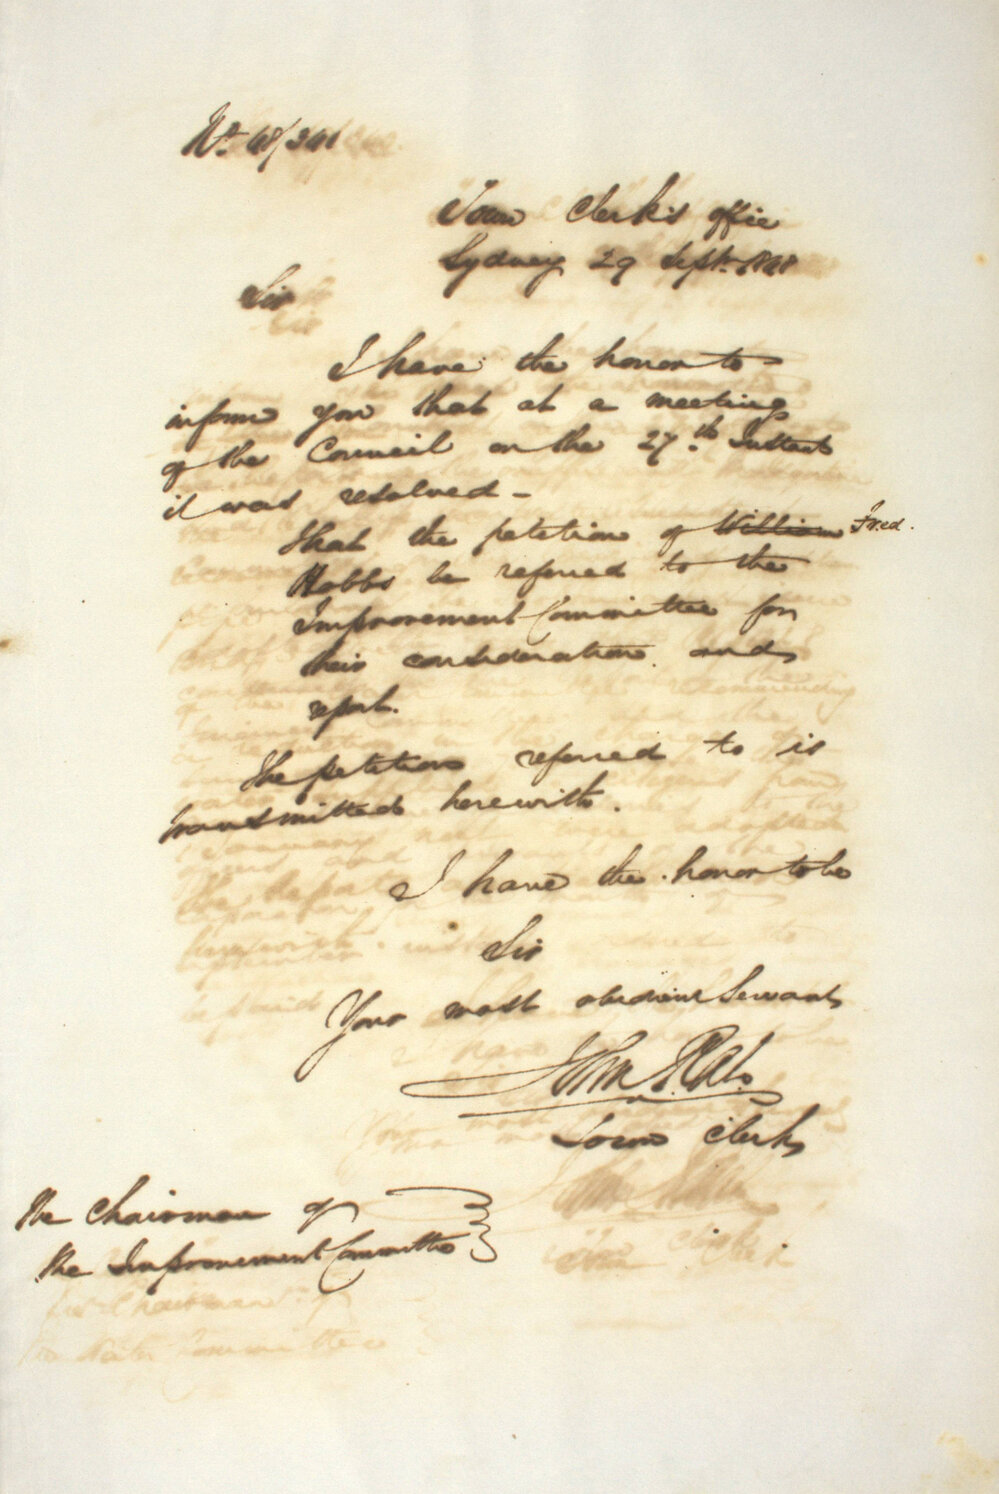 No. 48/341
Town Clerk's office
Sydney 29 Sept. 1848
Sir
I have the honor to
inform you that at a meeting
of the Council on the 27th Instant
it was resolved -
That the petition of William Fred.
Hobbs be referred to the
Improvement Committee for
their consideration and
report.
The petition referred to is
transmitted herewith.
I have the honor to be
Sir
Your most obedient Servant
John
Town Clerk
The Chairman of
the Improvement Committee